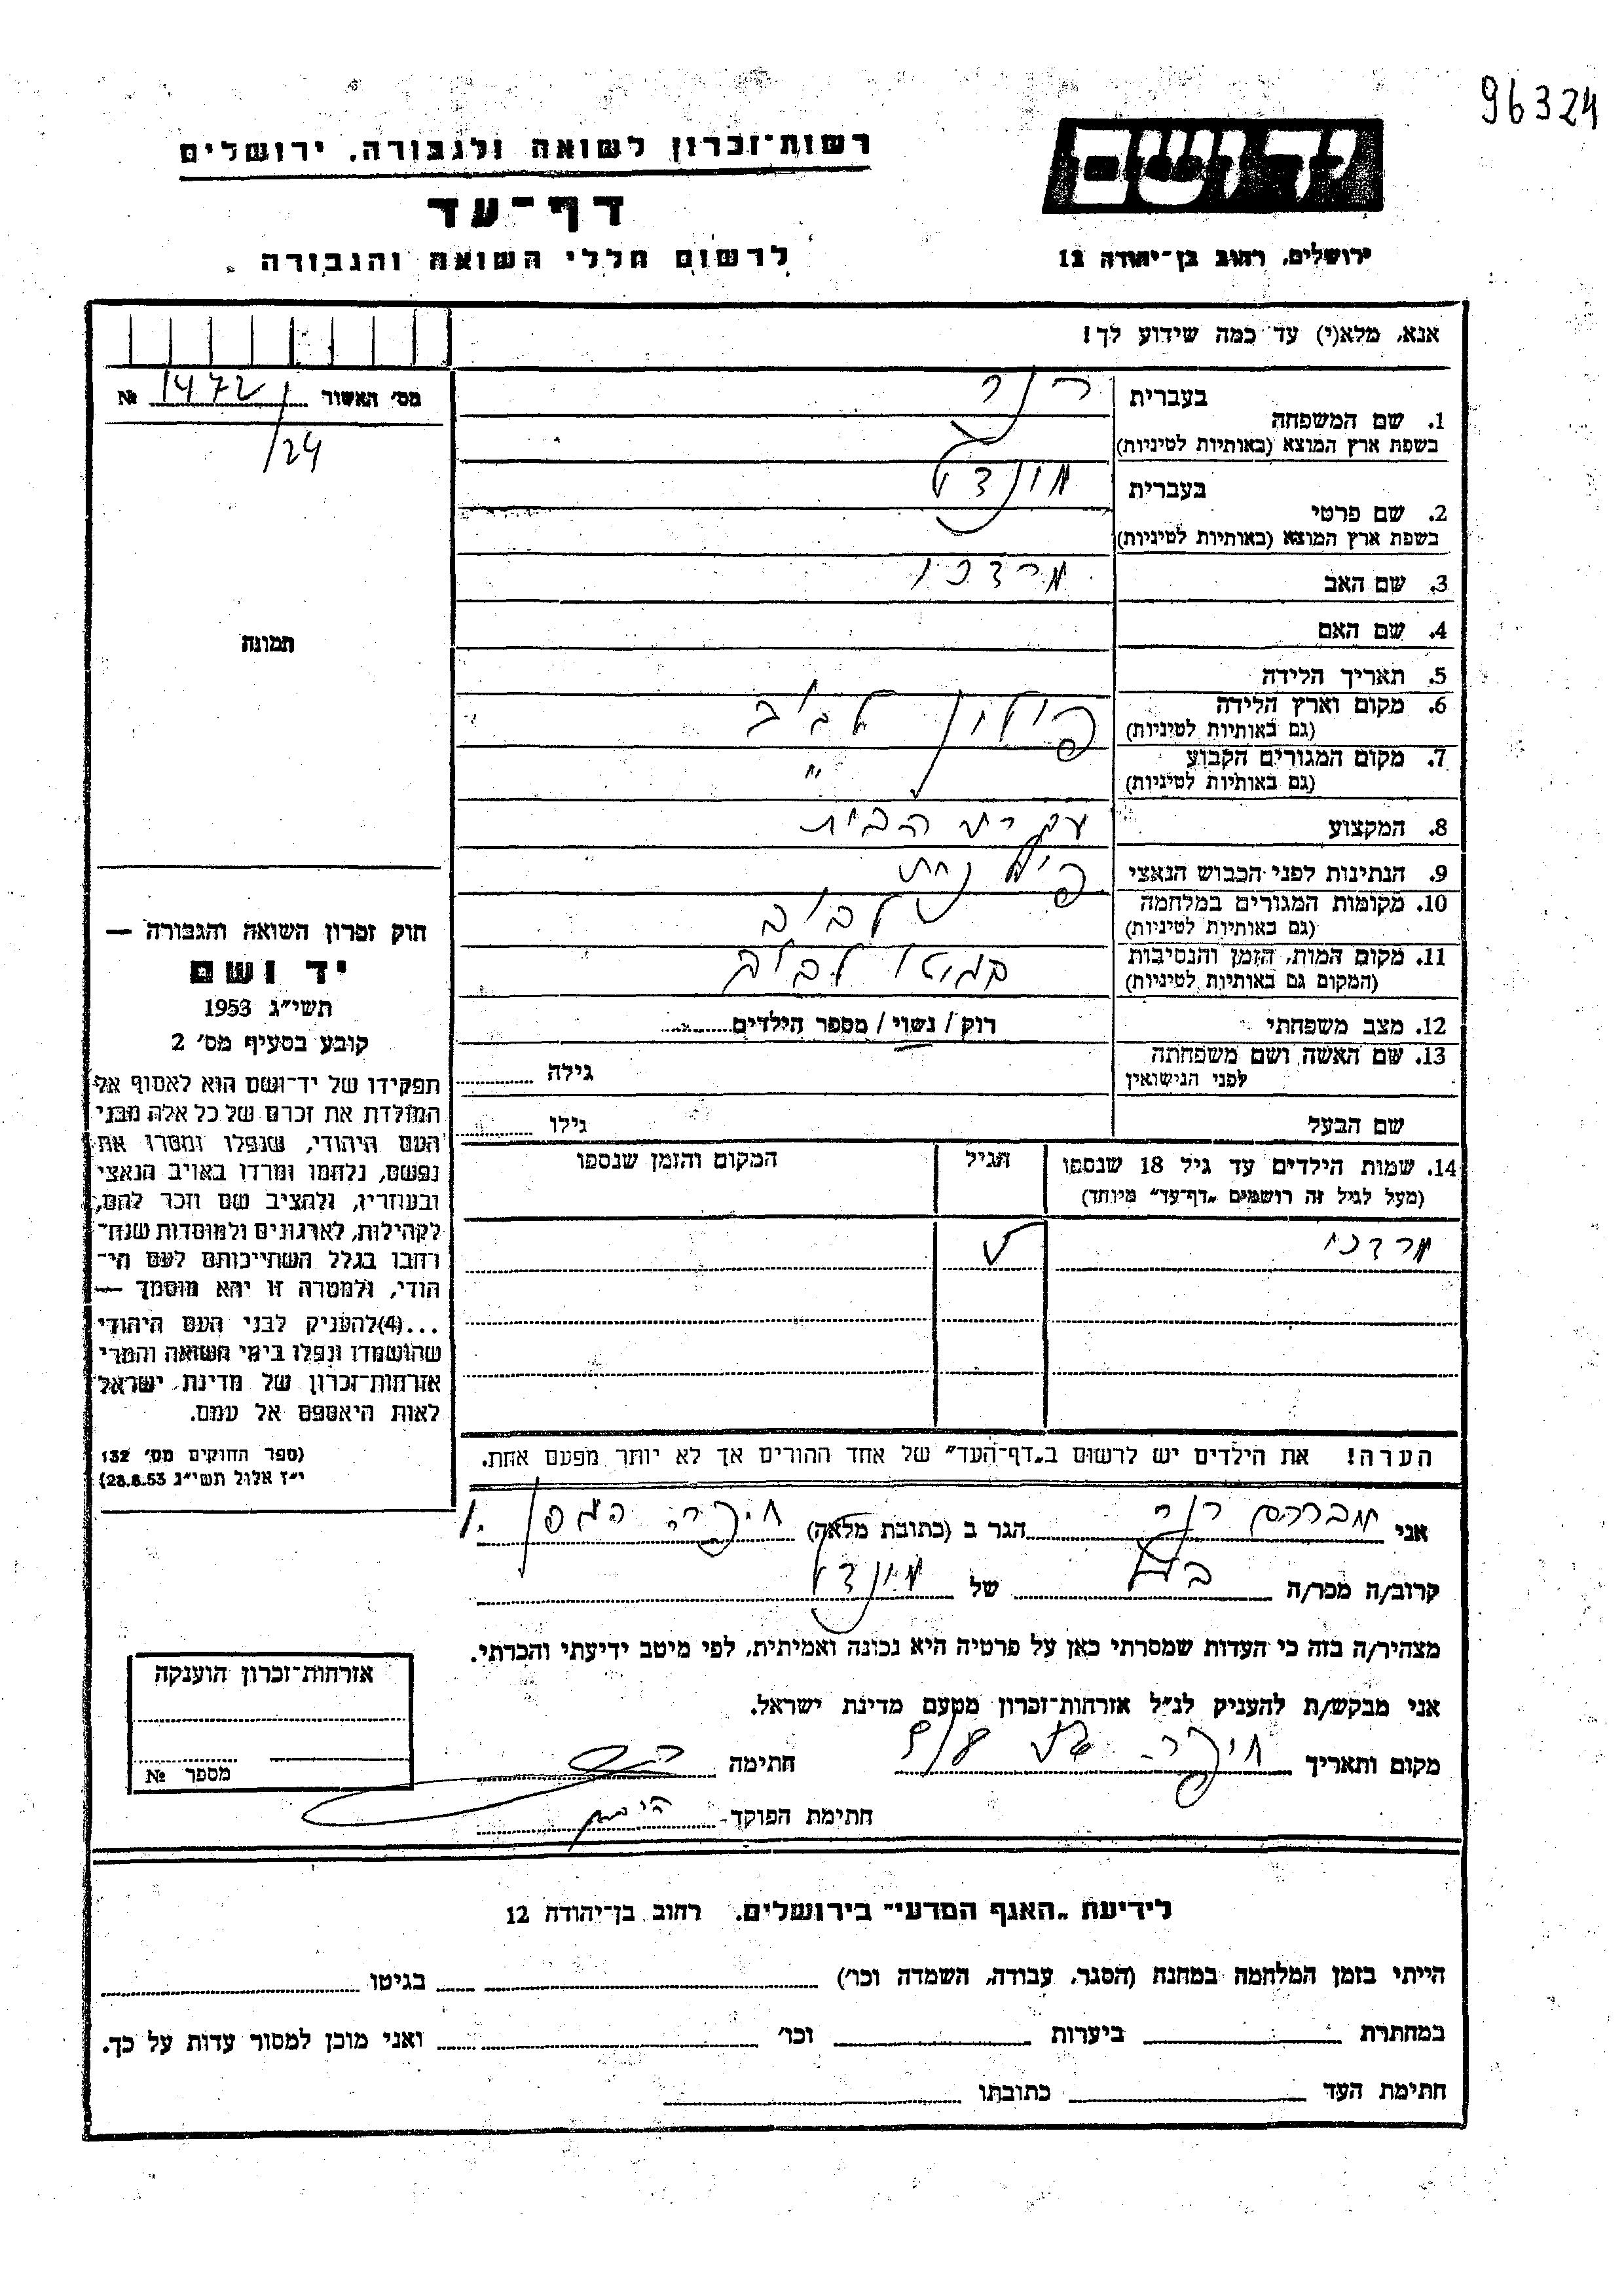 96324
רשות־זכרון לשואה ולגבורה, ירושלים
דף־עד
לרשום חללי השואה והגבורה
יד ושם
ירושלים, רחוב בן־יהודה 12
אנא, מלא(י) עד כמה שידוע לך!
מס' האשור № 1472/24
תמונה
1. שם המשפחה
בעברית
בשפת ארץ המוצא (באותיות לטיניות)
2. שם פרטי
בעברית
בשפת ארץ המוצא (באותיות לטיניות)
3. שם האב מרדכי
4. שם האם
5. תאריך הלידה
6. מקום וארץ הלידה פולין לבוב
(גם באותיות לטיניות)
7. מקום המגורים הקבוע "
(גם באותיות לטיניות)
8. המקצוע עקרת הבית
9. הנתינות לפני הכבוש הנאצי פולנית
10. מקומות המגורים במלחמה לבוב
(גם באותיות לטיניות)
11. מקום המות, הזמן והנסיבות בגיטו לבוב
(המקום גם באותיות לטיניות)
12. מצב משפחתי רוק / נשוי / מספר הילדים
13. שם האשה ושם משפחתה
לפני הנישואין גילה
שם הבעל גילו
14. שמות הילדים עד גיל 18 שנספו הגיל המקום והזמן שנספו
(מעל לגיל זה רושמים „דף־עד" מיוחד)
מרדכי
הערה! את הילדים יש לרשום ב„דף־העד" של אחד ההורים אך לא יותר מפעם אחת.
חוק זכרון השואה והגבורה —
יד ושם
תשי"ג 1953
קובע בסעיף מס' 2
תפקידו של יד־ושם הוא לאסוף אל
המולדת את זכרם של כל אלה מבני
העם היהודי, שנפלו ומסרו את
נפשם, נלחמו ומרדו באויב הנאצי
ובעוזריו, ולהציב שם וזכר להם,
לקהילות, לארגונים ולמוסדות שנח־
רבו בגלל השתייכותם לעם הי־
הודי, ולמטרה זו יהא מוסמך —
...(4)להעניק לבני העם היהודי
שהושמדו ונפלו בימי השואה והמרי
אזרחות־זכרון של מדינת ישראל
לאות היאספם אל עמם.
(ספר החוקים מס' 132
י"ז אלול תשי"ג 28.8.53)
אני אברהם הגר ב (כתובת מלאה) חיפה הגפן
קרוב/ה מכר/ה של
מצהיר/ה בזה כי העדות שמסרתי כאן על פרטיה היא נכונה ואמיתית, לפי מיטב ידיעתי והכרתי.
אני מבקש/ת להעניק לנ"ל אזרחות־זכרון מטעם מדינת ישראל.
מקום ותאריך חיפה חתימה
חתימת הפוקד
אזרחות־זכרון הוענקה
מספר №
לידיעת „האגף המדעי" בירושלים, רחוב בן־יהודה 12
הייתי בזמן המלחמה במחנה (הסגר, עבודה, השמדה וכו') בגיטו
במחתרת ביערות וכו' ואני מוכן למסור עדות על כך.
חתימת העד כתובתו